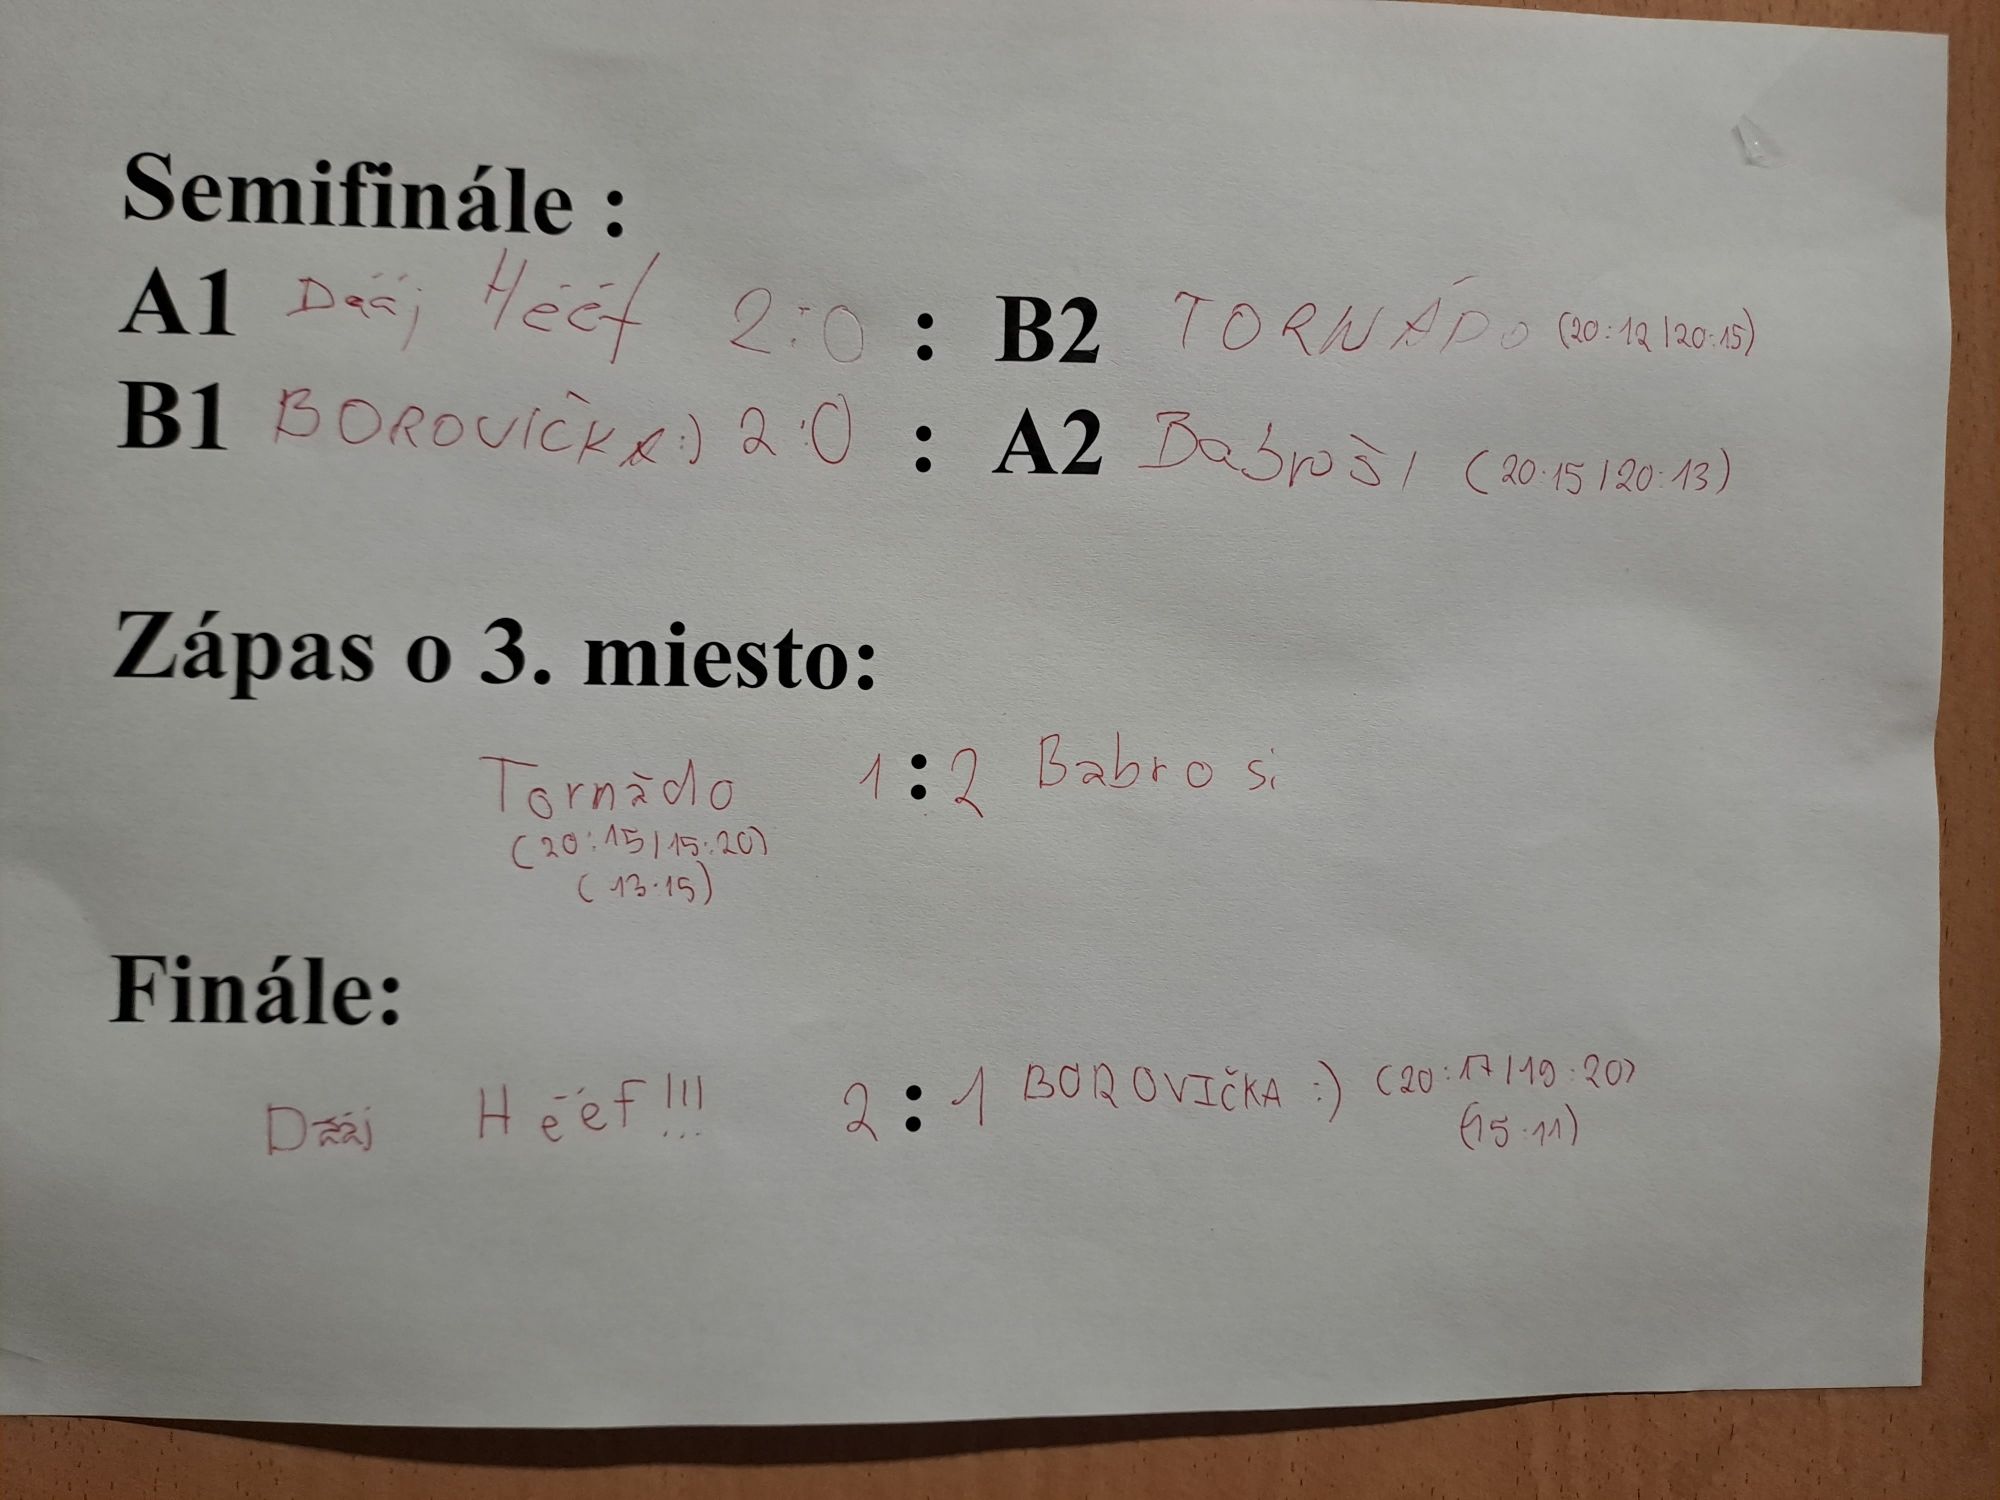 Semifinále :
A1 Dááj Hééf 2:0 : B2 TORNÁDO (20:12/20:15)
B1 BOROVIČKA:) 2:0 : A2 Babroši (20:15/20:13)
Zápas o 3. miesto:
Tornádo 1:2 Babrosi
(20:15/15:20)
(13:15)
Finále:
Dááj Hééf!!! 2:1 BOROVIČKA :) (20:17/19:20)
(15:11)